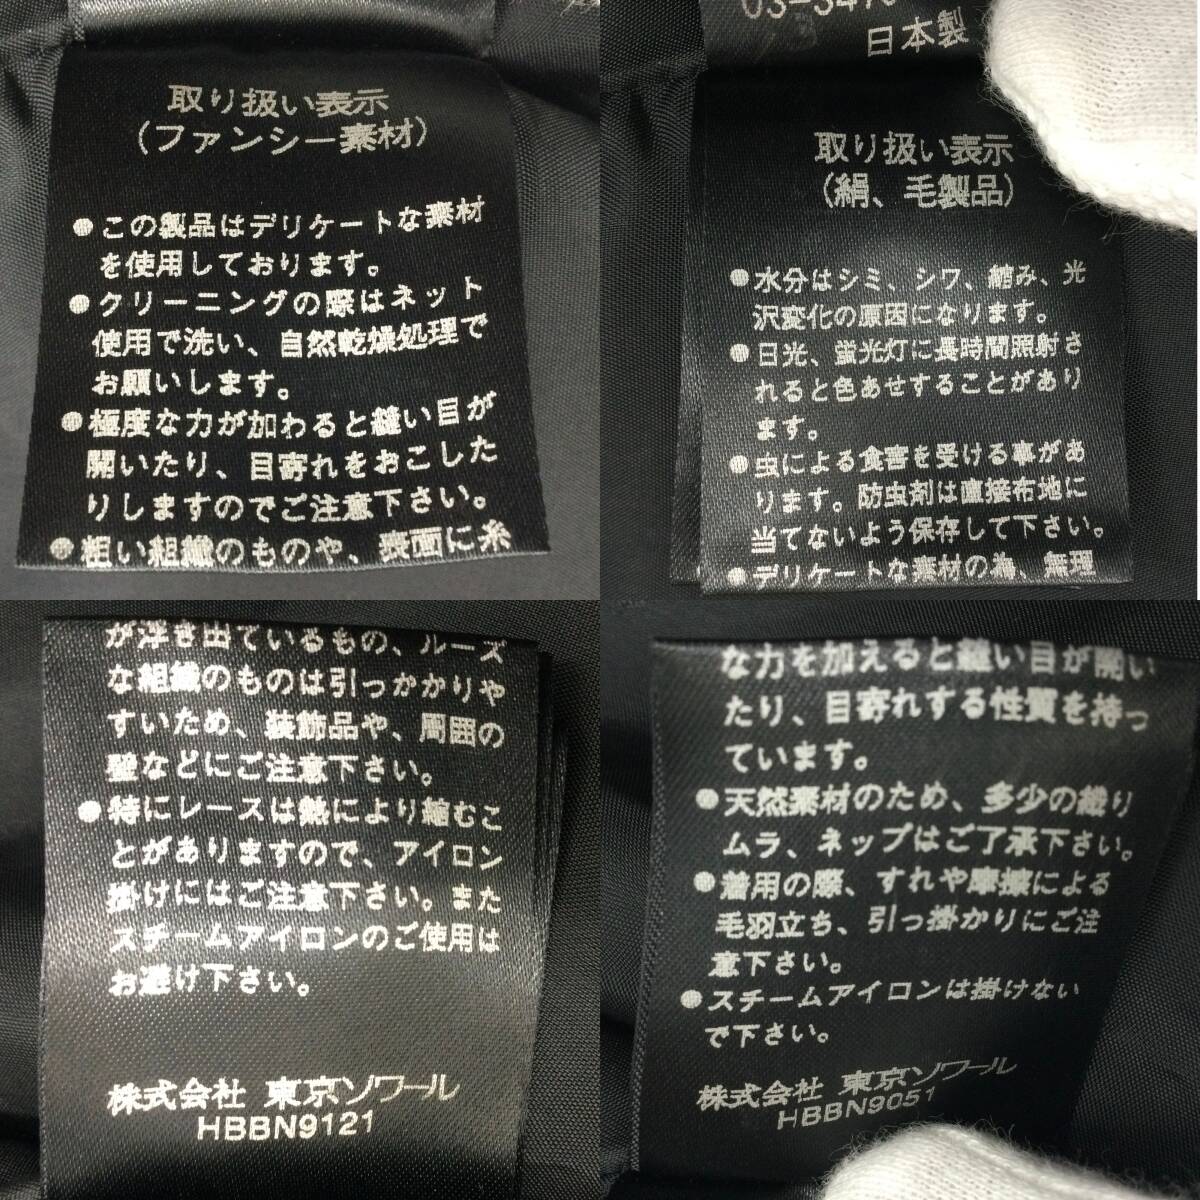 取り扱い表示
(ファンシー素材)
●この製品はデリケートな素材
を使用しております。
●クリーニングの際はネット
使用で洗い、自然乾燥処理で
お願いします。
●極度な力が加わると縫い目が
開いたり、目寄れをおこした
りしますのでご注意下さい。
●粗い組織のものや、表面に糸
日本製
取り扱い表示
(絹、毛製品)
●水分はシミ、シワ、縮み、光
沢変化の原因になります。
●日光、蛍光灯に長時間照射さ
れると色あせすることがあり
ます。
●虫による食害を受ける事があ
ります。防虫剤は直接布地に
当てないよう保存して下さい。
●デリケートな素材の為、無理
が浮き出ているもの、ルーズ
な組織のものは引っかかりや
すいため、装飾品や、周囲の
壁などにご注意下さい。
●特にレースは熱により縮むこ
とがありますので、アイロン
掛けにはご注意下さい。また
スチームアイロンのご使用は
お避け下さい。
株式会社 東京ソワール
HBBN9121
な力を加えると縫い目が開い
たり、目寄れする性質を持っ
ています。
●天然素材のため、多少の織り
ムラ、ネップはご了承下さい。
●着用の際、すれや摩擦による
毛羽立ち、引っ掛かりにご注
意下さい。
●スチームアイロンは掛けない
で下さい。
株式会社 東京ソワール
HBBN9051